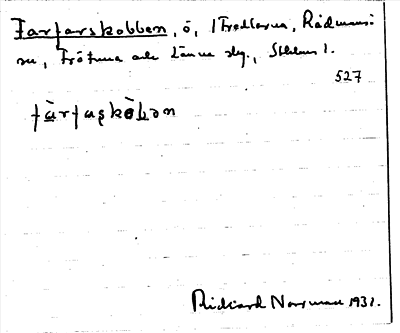 Farfarskobben, ö, i Fredlarna, Rådmansö
sn, Frötuna och Länna skg., Sthlms l.
527
fàrfaʂkòbən
Rickard Norrman 1931.